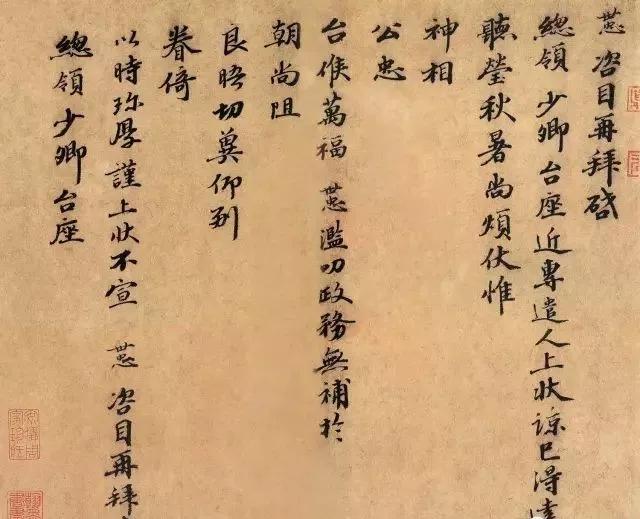 世忠咨目再拜啓
總領少卿台座近專遣人上狀諒已得達
聽瑩秋暑尚煩伏惟
神相
公忠
台候萬福世忠濫叨政務無補於
朝尚阻
良晤切冀仰副
眷倚
以時珎厚謹上狀不宣世忠咨目再拜
總領少卿台座